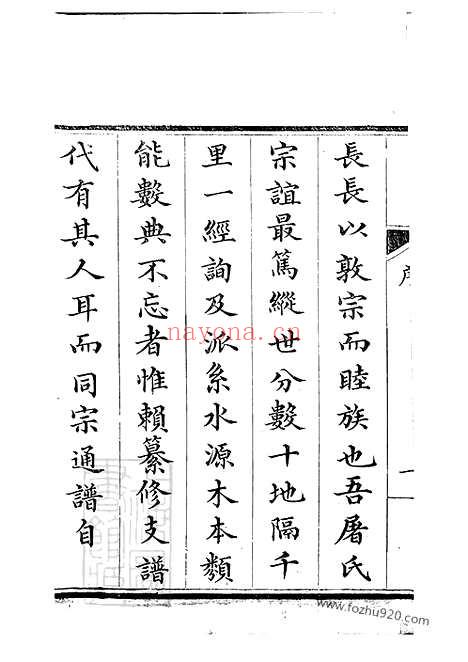 長長以敦宗而睦族也吾屠氏
宗誼最篤縱世分數十地隔千
里一經詢及派系水源木本類
能數典不忘者惟賴纂修支譜
代有其人耳而同宗通譜自
序
一
nayona.cn
www.fozhu920.com